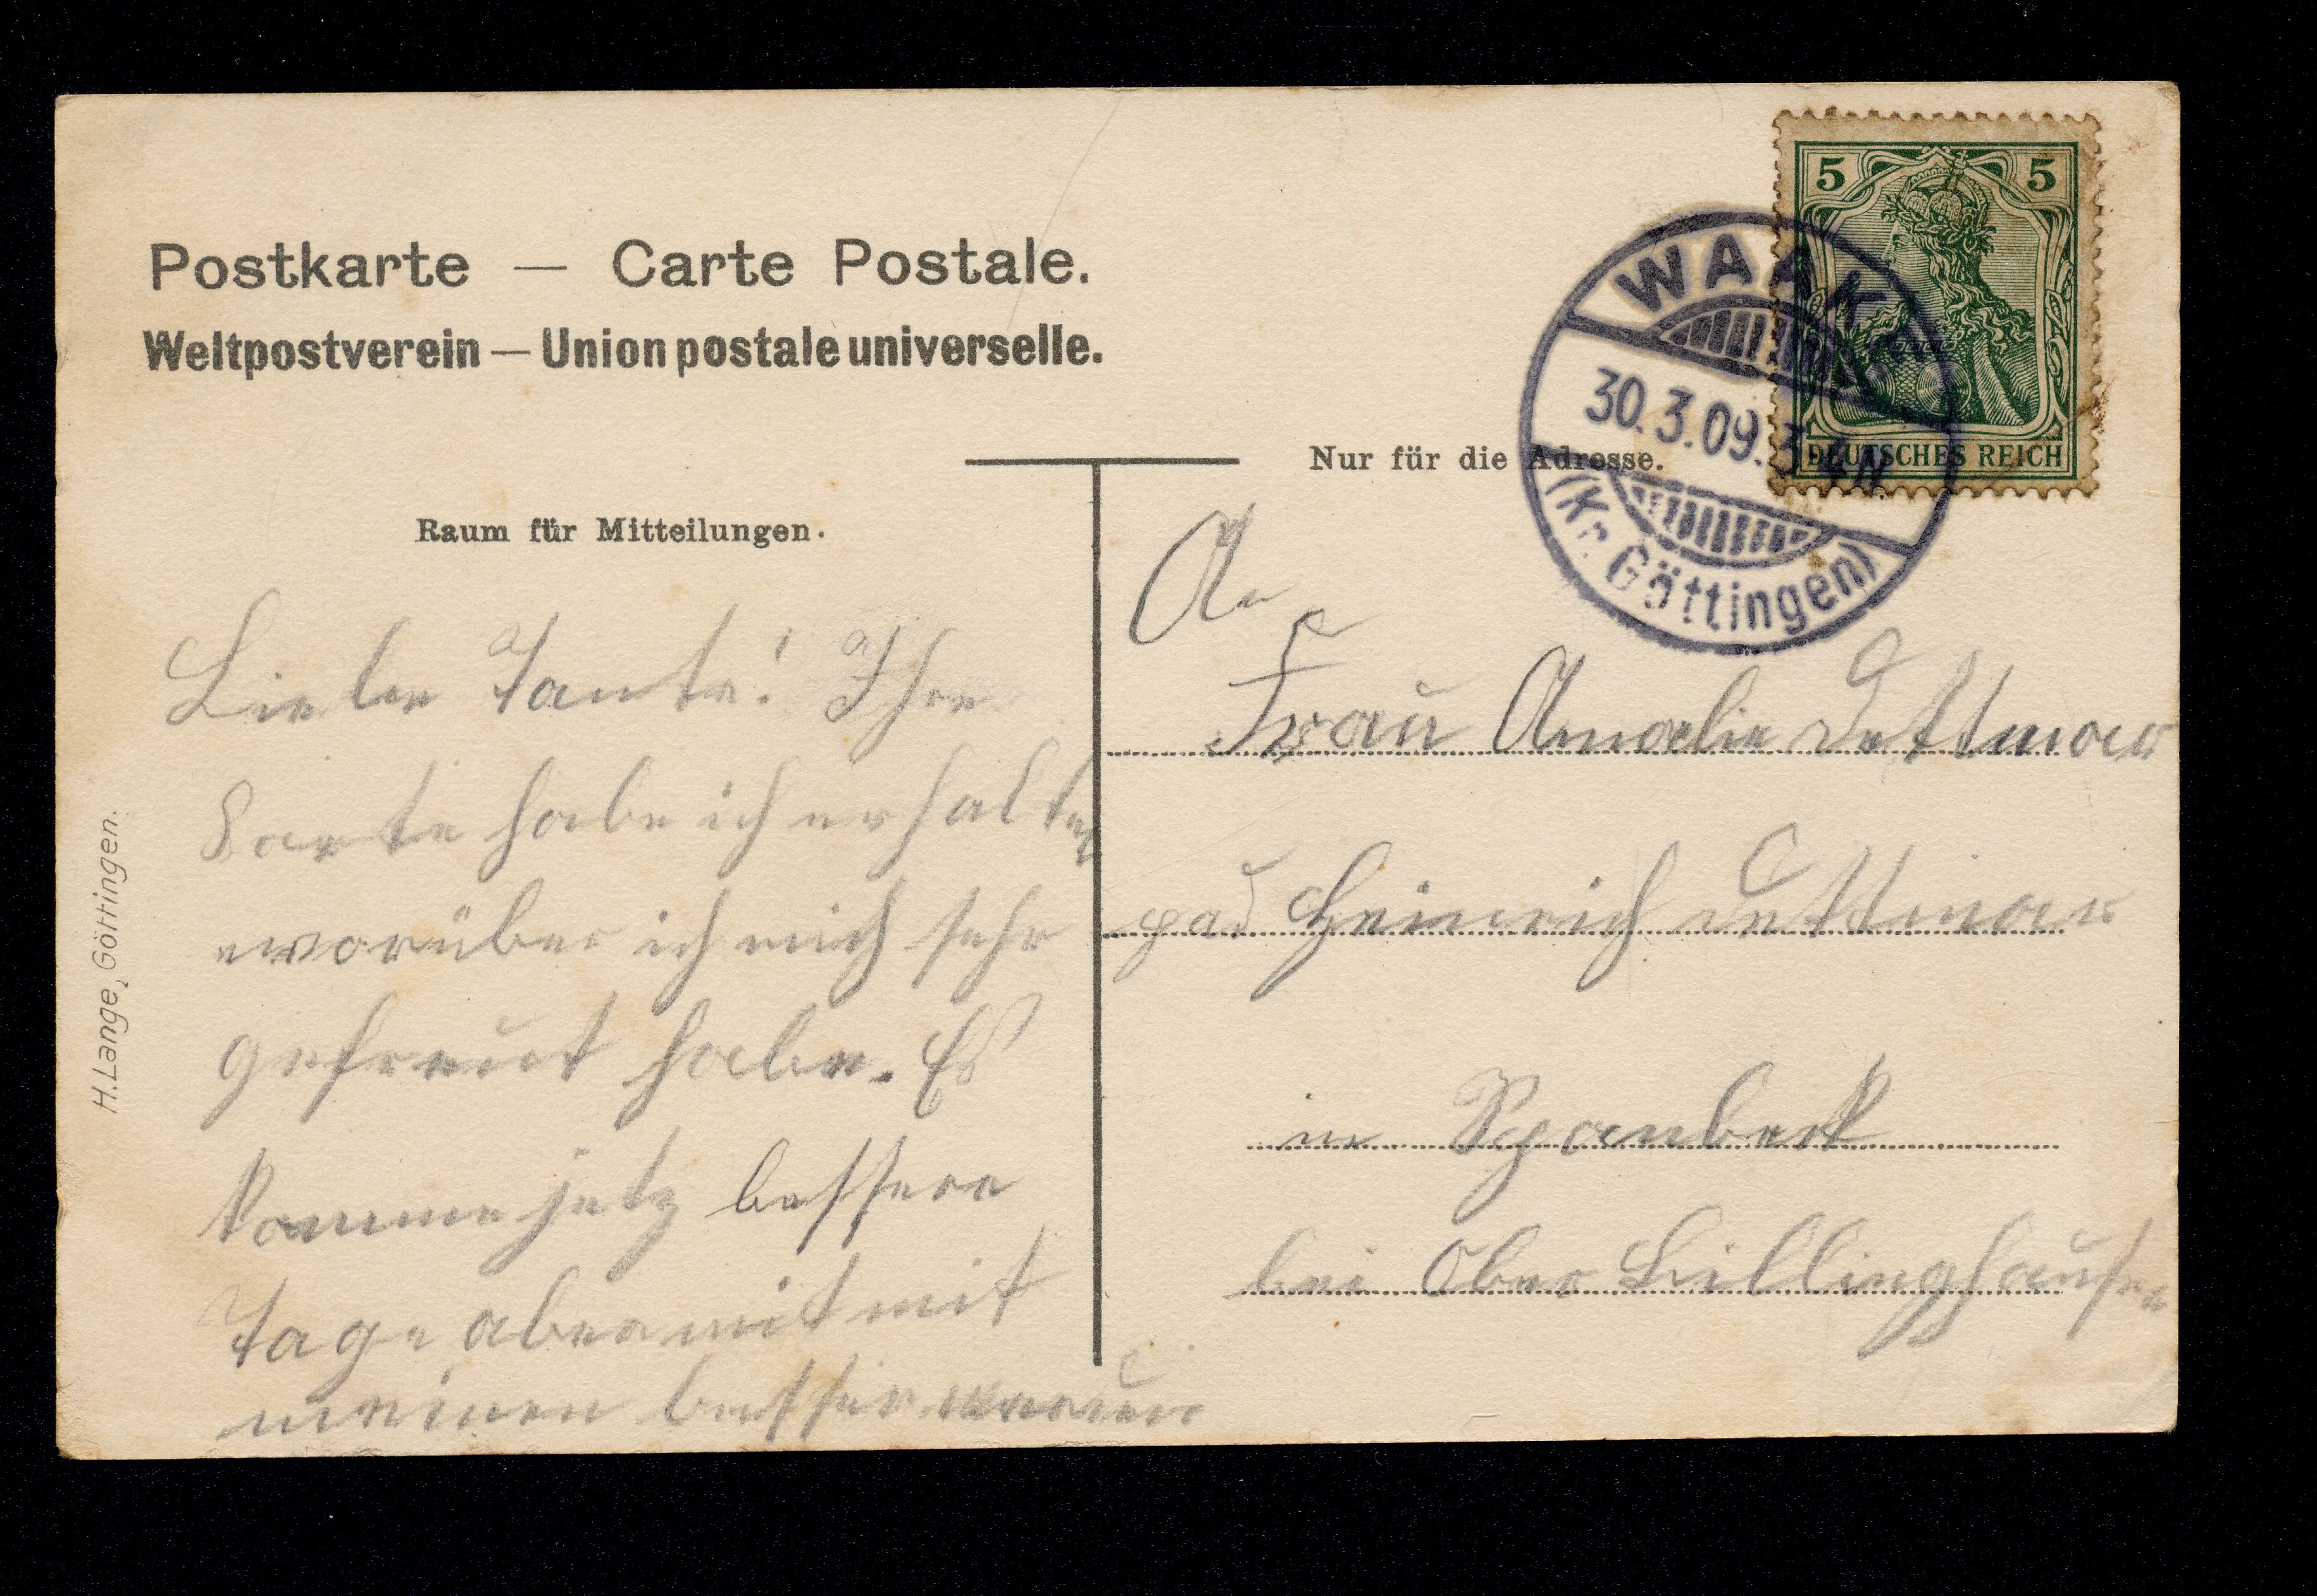 Postkarte — Carte Postale.
Weltpostverein — Union postale universelle.
5 5
DEUTSCHES REICH
WAAKE
30.3.09. 3-4N
(Kr. Göttingen)
Nur für die Adresse.
Raum für Mitteilungen.
H. Lange, Göttingen.
Liebe Tante! Ihre
Karte habe ich erhalten
worüber ich mich sehr
gefreut habe. Es
komme jetz bessere
Tage aber mit
meinen besser
An
Frau Amalie Dettmar
pad Heinrich Dettmar
in Spanbeck
bei Ober Billinghausen